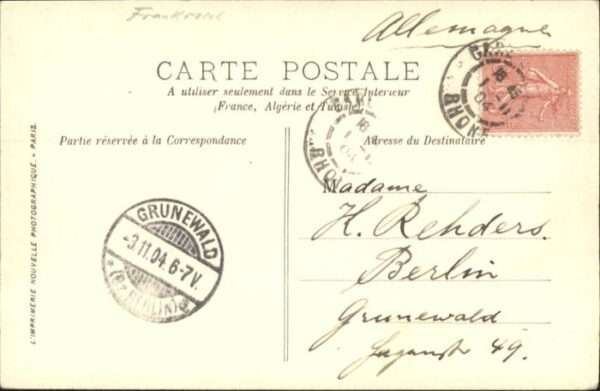 Frankreich
Allemagne
CARTE POSTALE
A utiliser seulement dans le Service Intérieur
(France, Algérie et Tunisie)
Partie réservée à la Correspondance
Adresse du Destinataire
Madame
H. Rehders.
Berlin
Grunewald
49.
GRUNEWALD
-3.11.04.6-7V.
(BZ. BERLIN)
RHONE
L'IMPRIMERIE NOUVELLE PHOTOGRAPHIQUE. - PARIS.